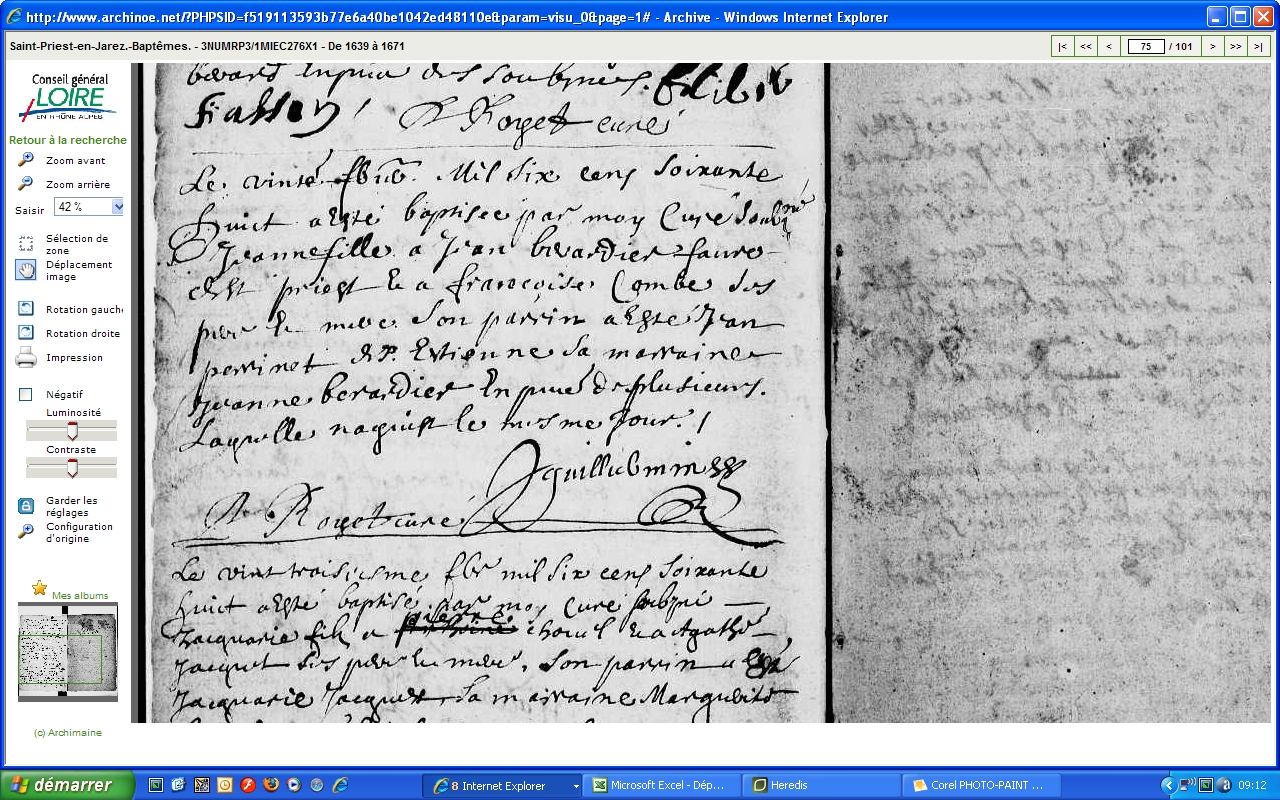 http://www.archinoe.net/?PHPSID=f519113593b77e6a40be1042ed48110e&param=visu_0&page=1# - Archive - Windows Internet Explorer
Saint-Priest-en-Jarez.-Baptêmes. - 3NUMRP3/1MIEC276X1 - De 1639 à 1671
|< << < 75 / 101 > >> >|
Conseil général
LOIRE
EN RHÔNE ALPES
Retour à la recherche
Zoom avant
Zoom arrière
Saisir 42 %
Sélection de
zone
Déplacement
image
Rotation gauche
Rotation droite
Impression
Négatif
Luminosité
Contraste
Garder les
réglages
Configuration
d'origine
Mes albums
(c) Archimaine
des soubznes.
Royet curé
Le vinte Mil six cens soixante
huict a esté baptisee par moy Curé soubné
Jeanne fille a Jean berardier faure
priest & a francoise Combe ses
pere & mere son parrin a esté Jean
perrinet de St. Estienne sa marraine
Jeanne berardier En pnce de plusieurs.
Laquelle naquist le mesme jour.
guilliebminess
Royet curé
Le vint troisiesme fbr mil six cens soixante
huict a esté baptisé par moy Curé soubzné
Jacquarie fils a pierre & a Agathe
Jacquet ses pere & mere, son parrin a esté
Jacquarie Jacquet sa marraine Marguerite
démarrer
8 Internet Explorer
Microsoft Excel - Dép...
Heredis
Corel PHOTO-PAINT ...
09:12